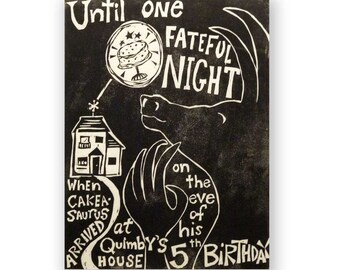 Until one
FATEFUL
NIGHT
When
CAKEA-
SAURUS
ARRIVED
at
Quimby's
HOUSE
on
the
eve
of
his
5th
BIRTHDAY